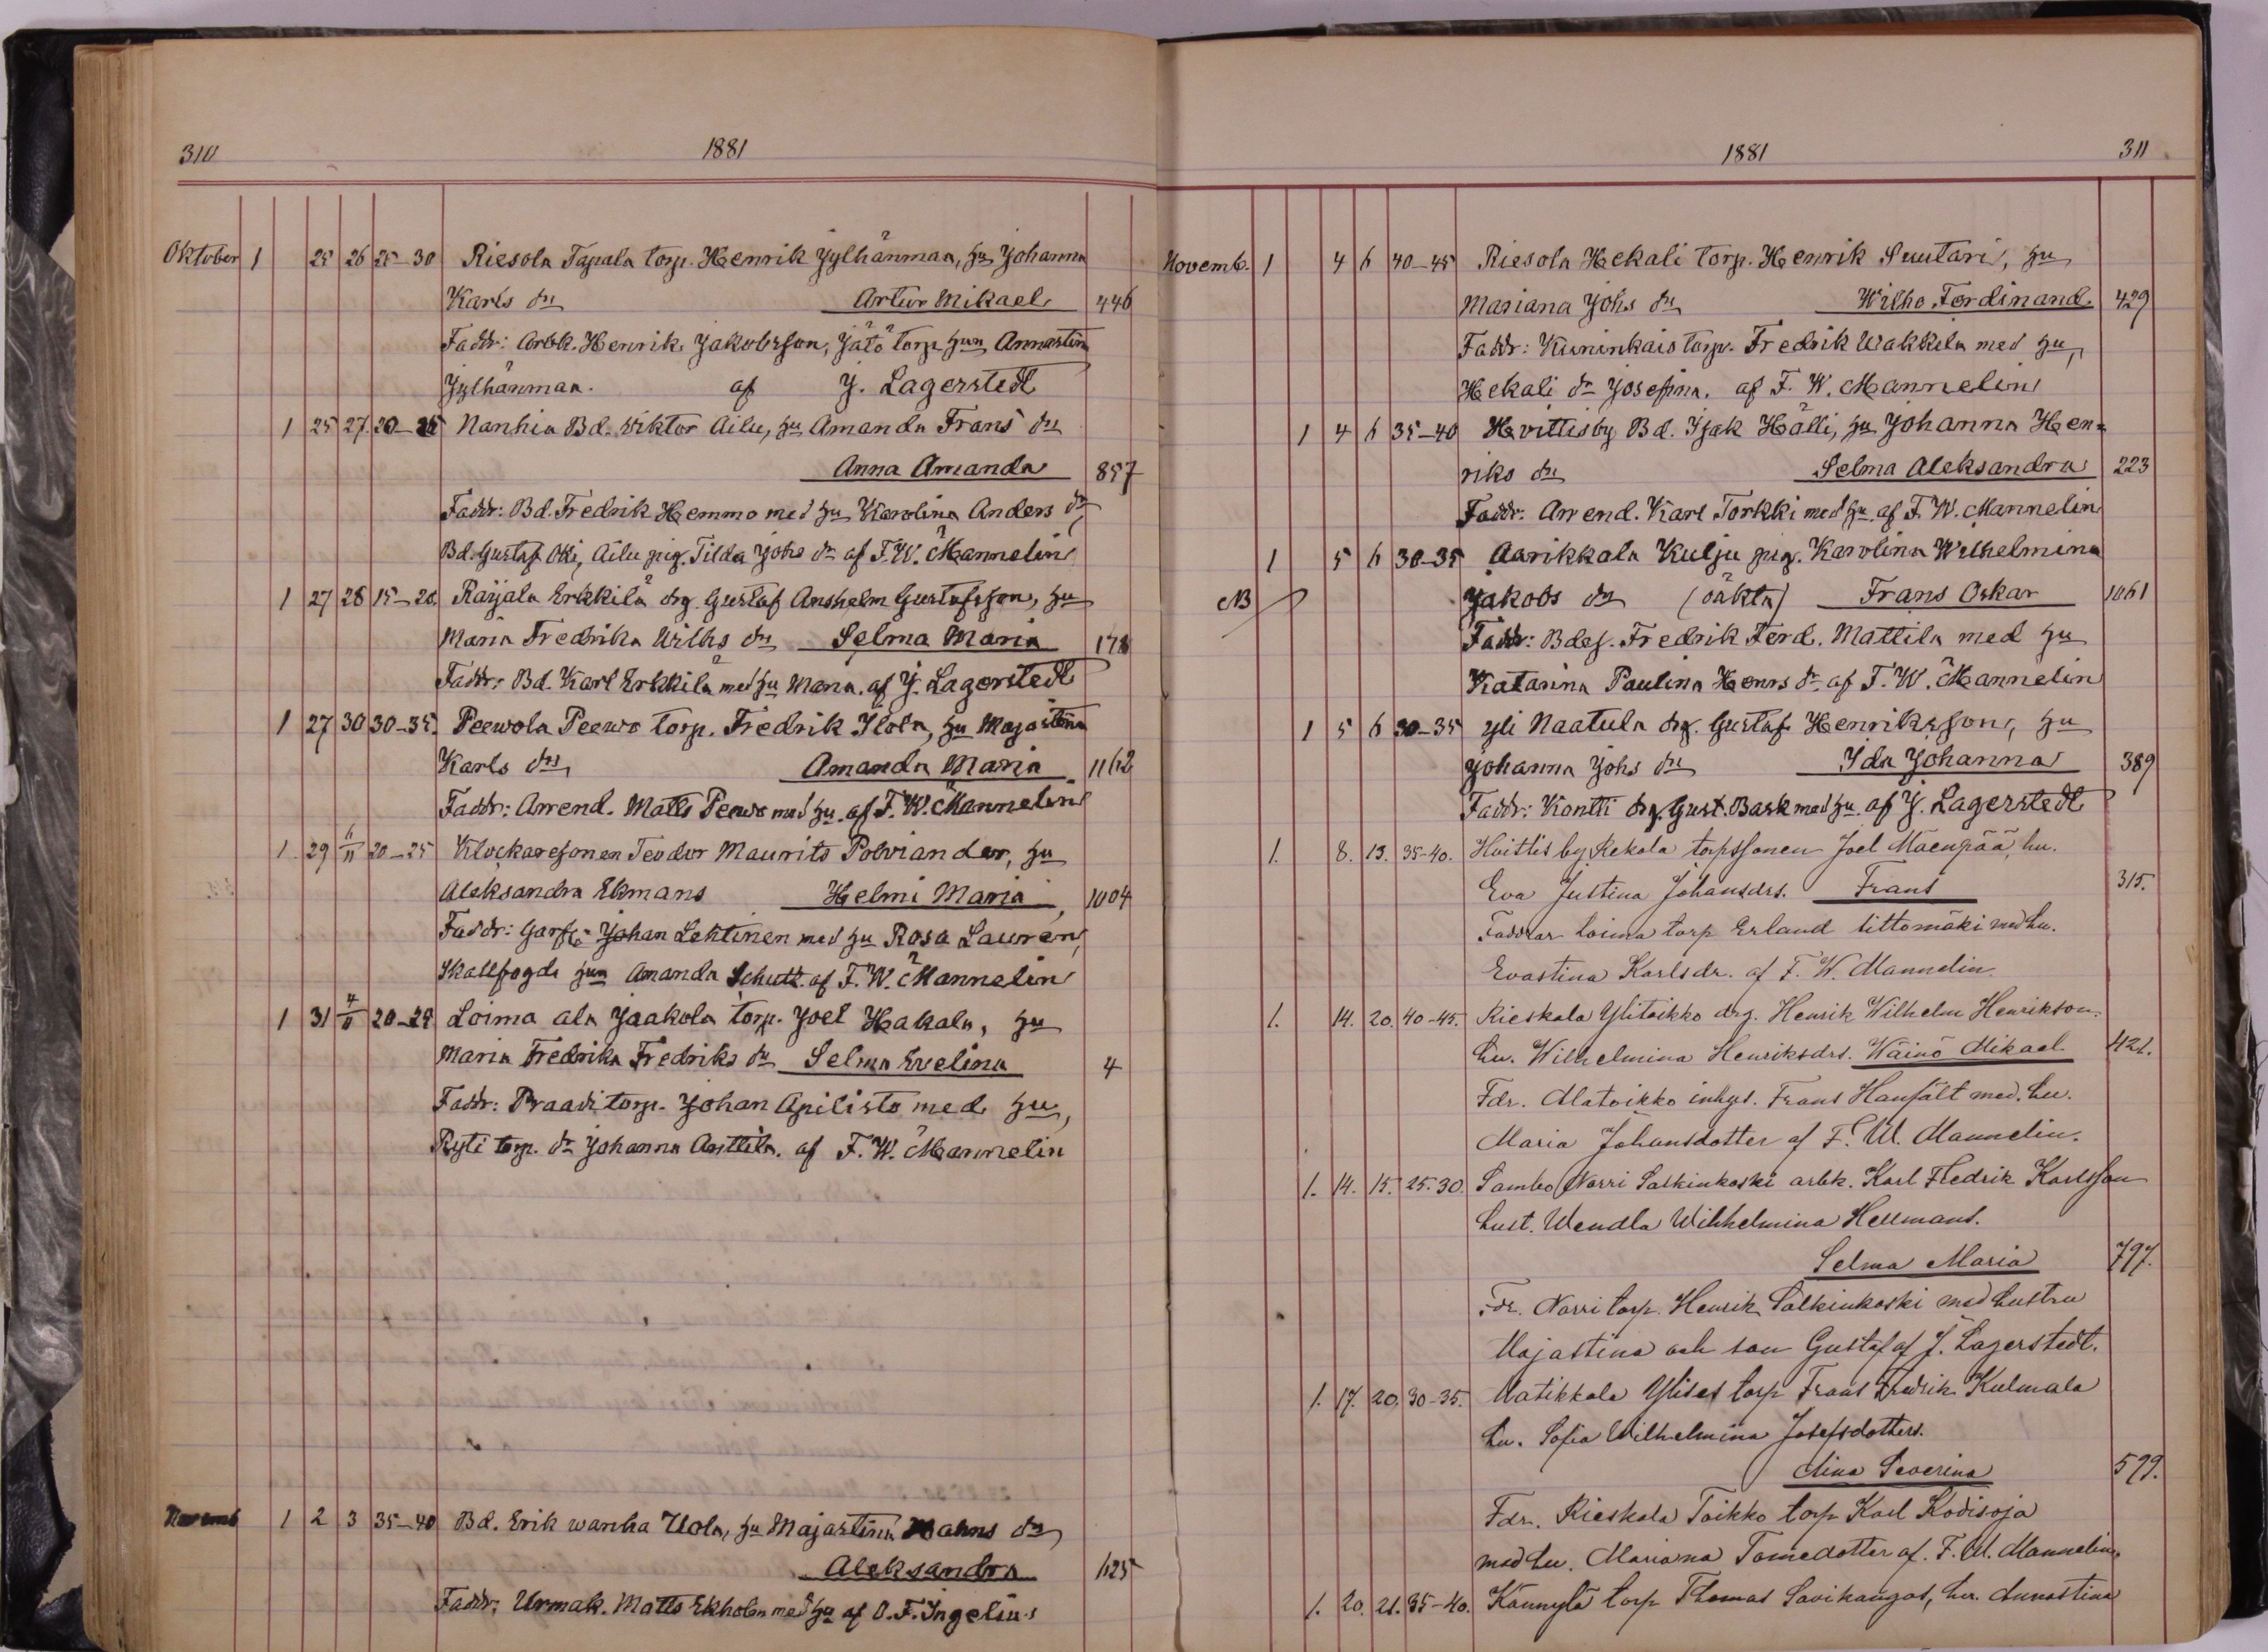 310
1881
Oktober 1 25 26 25-30 Riesola Tapala torp. Henrik Jylhänmaa, hu Johanna
Karls dr Artur Mikael 446
Faddr: Arbk. Henrik Jakobsson, Jätö torp hun Annastina
Jylhänmaa. af J. Lagerstedt
1 25 27. 20-25 Nanhia Bd. Viktor Ailu, hu Amanda Frans dr
Anna Amanda 857
Faddr: Bd. Fredrik Hemmo med hu Karolina Anders dr,
Bd. Gustaf Oki, Ailu pig. Tilda Johs dr af F.W. Mannelin
1 27 28 15-20. Raijala Erkkilä drg Gustaf Anshelm Gustafsson, hu
Maria Fredrika Wilhs dr Selma Maria 178
Faddr: Bd. Karl Erkkilä med hu Maria. af J. Lagerstedt
1 27 30 30-35. Peewola Peewo torp. Fredrik Ilola, hu Majastina
Karls dr Amanda Maria 1162
Faddr: Arrend. Matts Peewo med hu. af F.W. Mannelin
1. 29 6/11 20-25 Klockaresonen Teodor Maurits Polviander, hu
Aleksandra Ekmans Helmi Maria, 1004
Faddr: Johan Lehtinen med hu Rosa Lauren,
Skallfogds hun Amanda Schutt. af F.W. Mannelin
1 31 4/11 20-25 Loima ala Jaakola torp. Joel Hakala, hu
Maria Fredrika Fredriks dr Selma Evelina 4
Faddr: Praadi torp. Johan Apilisto med hu,
Ryti torp. dr Johanna Anttila. af F.W. Mannelin
Novemb 1 2 3 35-40 Bd. Erik wanha Uola, hu Majastina dr
Aleksandra 625
Faddr: Urmak. Matts Ekholm med hu af O.F. Ingelius
1881
311
Novemb. 1 4 6 40-45 Riesola Hekali torp. Henrik Suutari, hu
Mariana Johs dr Wilho Ferdinand. 429
Faddr: Kuninkais torp. Fredrik Wakkila med hu,
Hekali dr Josefina. af F.W. Mannelin
1 4 6 35-40 Hvittisby Bd. Isak Hälli, hu Johanna Hen=
riks dr Selma Aleksandra 223
Faddr. Arrend. Karl Torkki med hu. af F.W. Mannelin
1 5 6 30-35 Aarikkala Kulju pig. Karolina Wilhelmina
NB Jakobs dr (oäkta) Frans Oskar 1061
Faddr: Bdes. Fredrik Ferd. Mattila med hu
Katarina Paulina Henrs dr af F.W. Mannelin
1 5 6 30-35 Yli Naatula drg. Gustaf Henriksson, hu
Johanna Johs dr Ida Johanna 389
Faddr: Kontti drg. Gust. Bask med hu. af J. Lagerstedt
1. 8. 13. 35-40. Hvittis by Rekola torpssonen Joel Mäenpää, hu.
Eva Justina Johansdrs. Frans 315.
Faddrar Loima torp Erland Littomäki med hu.
Evastina Karlsdr. af F.W. Mannelin.
1. 14. 20. 40-45. Rieskala Ylitoikko drg. Henrik Wilhelm Henrikson.
hu. Wilhelmina Henriksdrs. Wäinö Mikael. 421.
Fdr. Alatoikko inhys. Frans Hanfält med. hu.
Maria Johansdotter af F.W. Mannelin.
1. 14. 15. 25.30. Sambo Norri Salkinkoski arbk. Karl Fredrik Karlsson
hust. Wendla Wilhhelmina Hellmans.
Selma Maria 797.
Fdr. Norri torp. Henrik Salkinkoski med hustru
Majastina och son Gustaf af J. Lagerstedt.
1. 17. 20. 30-35. Matikkala Ylises torp Frans Fredrik Kulmala
hu. Sofia Wilhelmina Josefsdotters.
Mina Severina 599.
Fdr. Rieskala Toikko torp Karl Kodisoja
med hu. Mariana Tomedotter af. F.W. Mannelin.
1. 20. 21. 35-40. Kännylä torp Thomas Savikangas, hu. Annastina